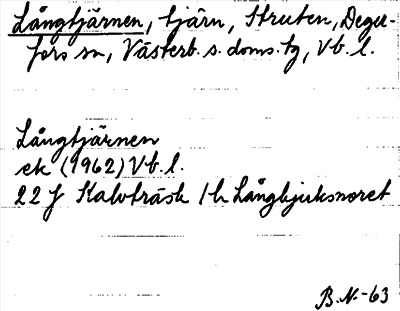 Långtjärnen, tjärn, Struten, Deger-
fors sn, Västerb. s. doms. tg, Vb. l.
Långtjärnen
ek (1962) Vb. l.
22 J Kalvträsk 1 h
B. N. -63